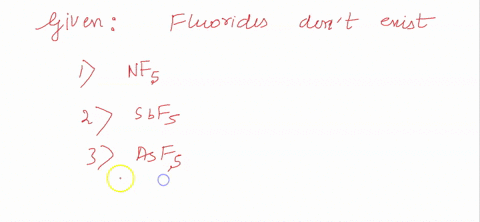 Given: Fluorides don't exist
1) NF5
2) SbF5
3) AsF5